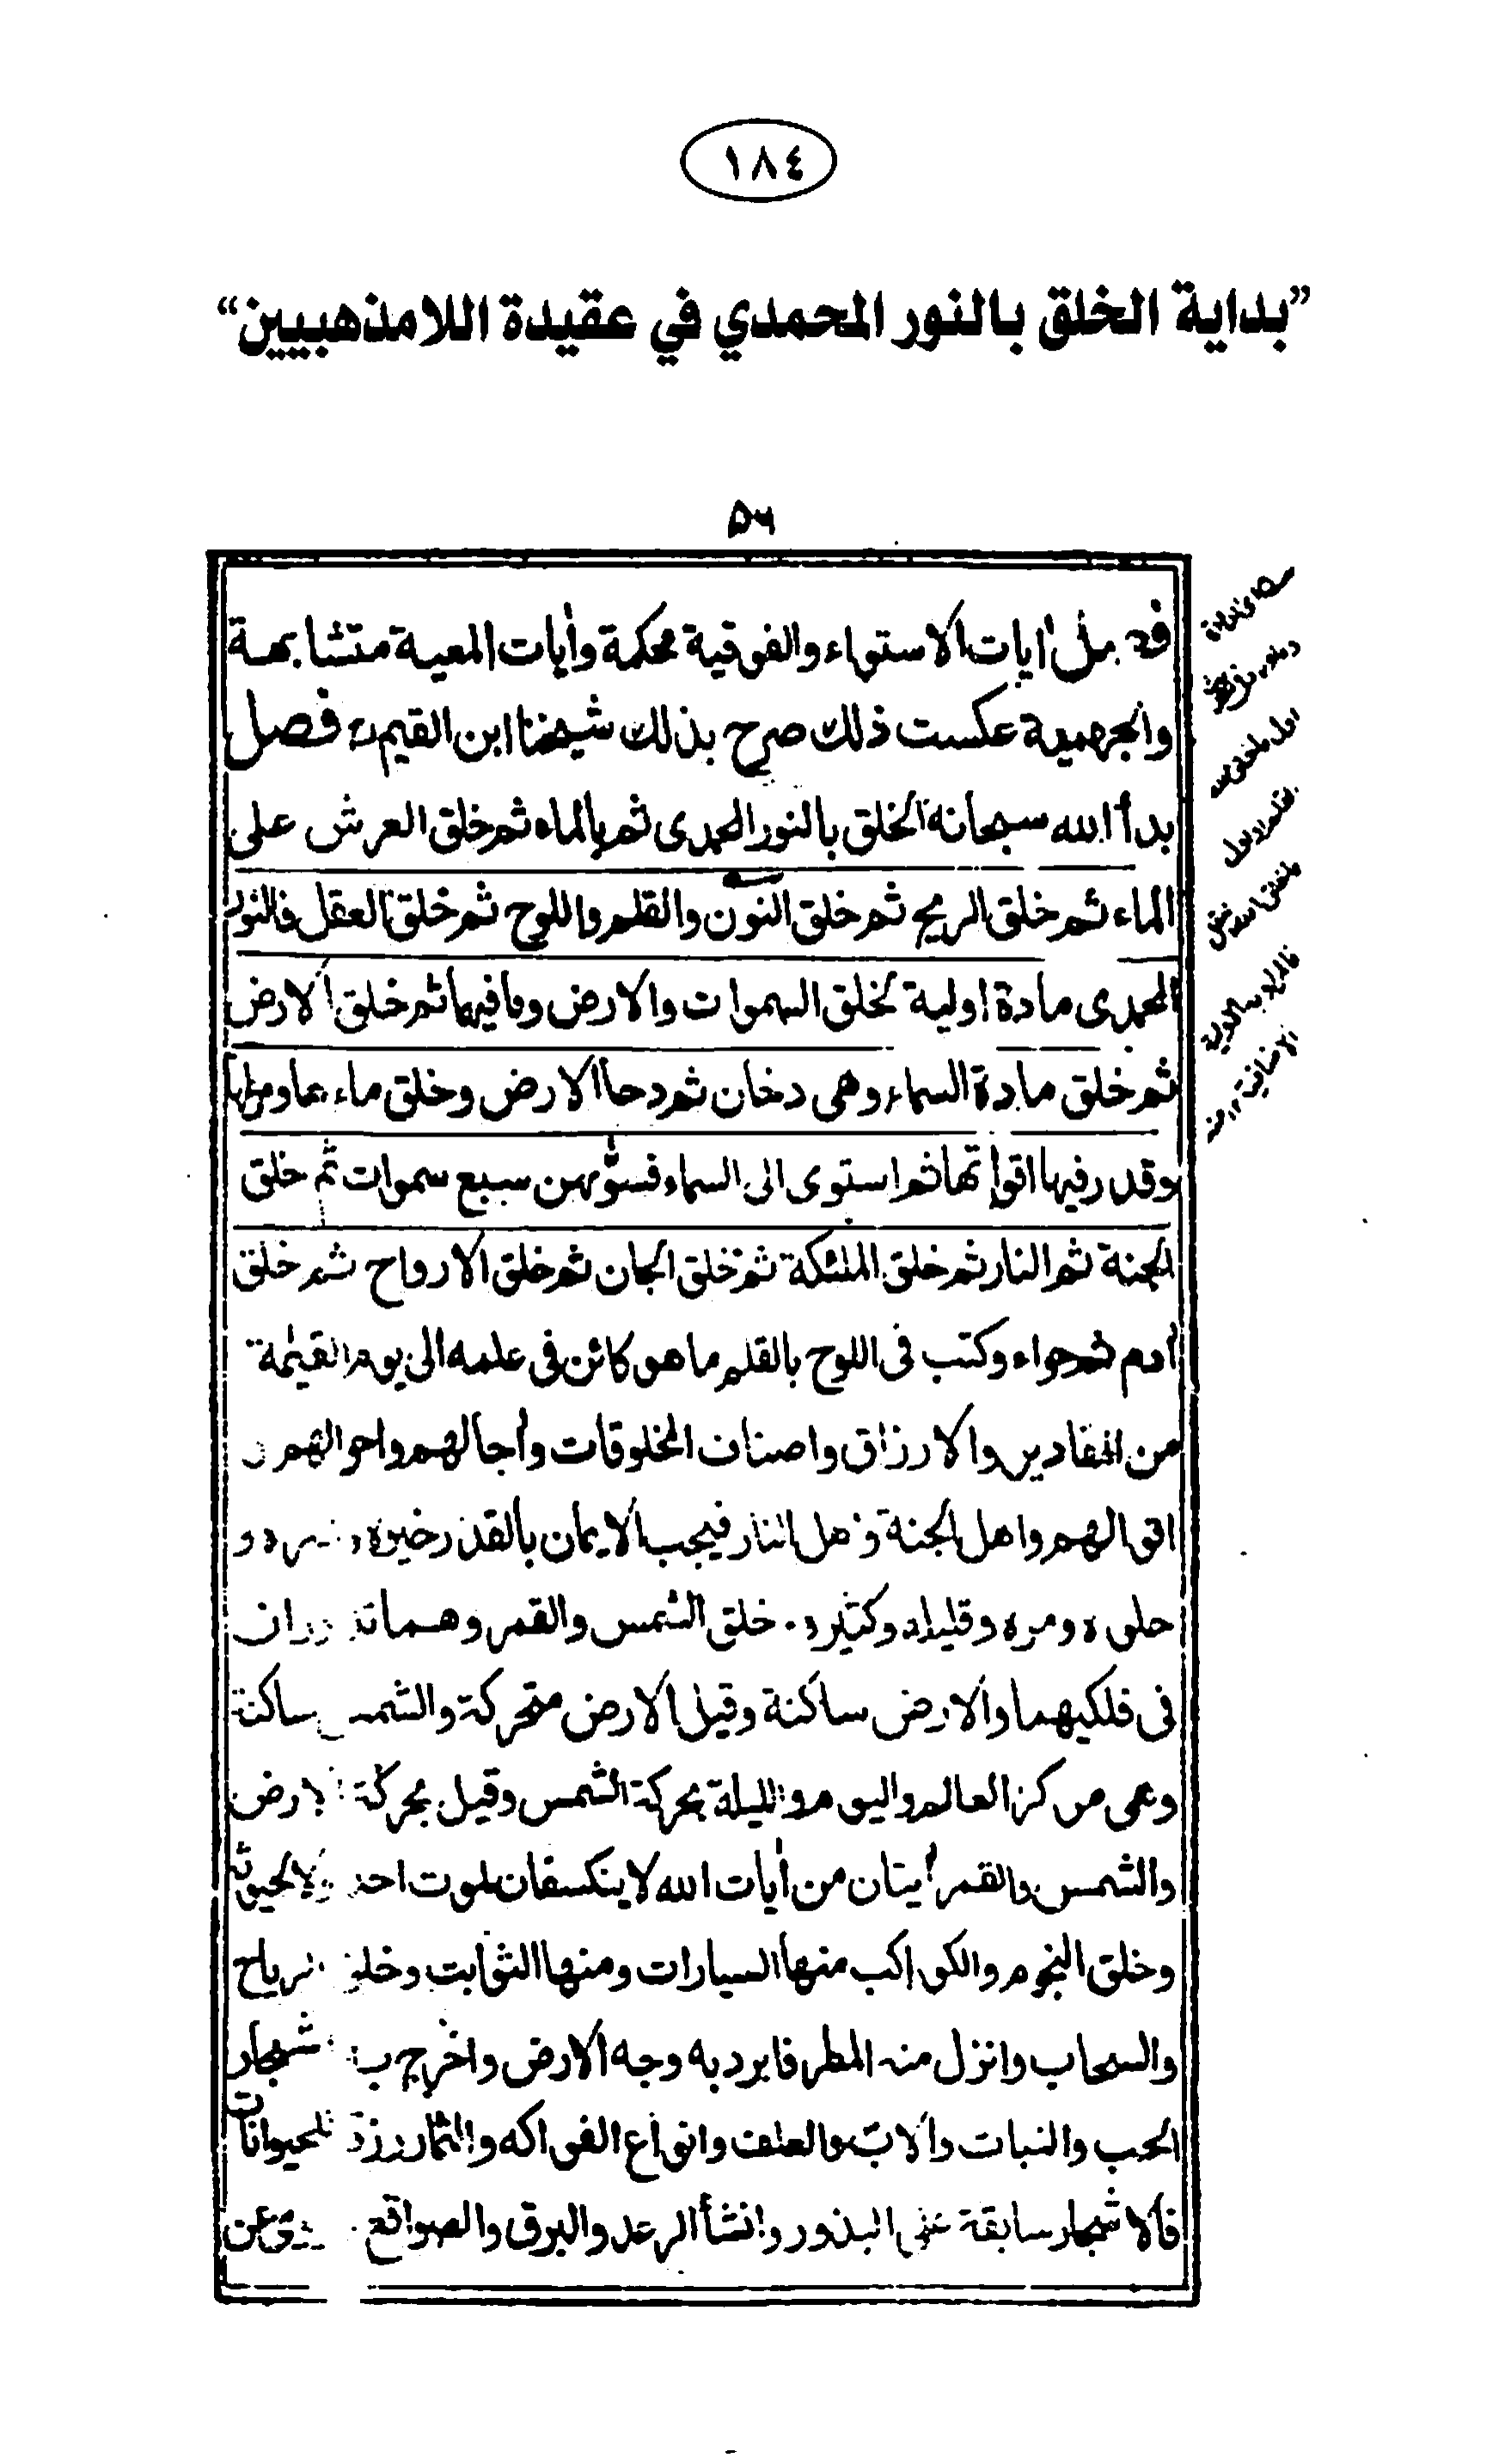 ١٨٤
”بداية الخلق بالنور المحمدي في عقيدة اللامذهبيين“
۵۶
بل اٰيات الاستواء والفوقية محكمة واٰيات المعية متشابهة
والجهمية عكست ذلك صرح بذلك شيخنا ابن القيم رح فصل
بدأ الله سبحانه الخلق بالنور المحمدى ثم بالماء ثم خلق العرش على
الماء ثم خلق الريح ثم خلق النون والقلم واللوح ثم خلق العقل فالنور
المحمدى مادة اولية لخلق السموات والارض وما فيهما ثم خلق الارض
ثم خلق مادة السماء وهى دخان ثم دحا الارض وخلق ماء
وقدر فيها اقواتها ثم استوى الى السماء فسوّٰهن سبع سموات ثم خلق
الجنة ثم النار ثم خلق الملئكة ثم خلق الجان ثم خلق الارواح ثم خلق
اٰدم ثم حواء وكتب فى اللوح بالقلم ما هو كائن فى علمه الى يوم القيٰمة
من المقادير والارزاق واصناف المخلوقات واٰجالهم واحوالهم و
اقوالهم واهل الجنة واهل النار فيجب الايمان بالقدر خيره وشره و
حلوه ومره وقليله وكثيره خلق الشمس والقمر وهما تدوران
فى فلكيهما والارض ساكنة وقيل الارض متحركة والشمس ساكنة
وهى مركز العالم واليوم والليلة بحركة الشمس وقيل بحركة الارض
والشمس والقمر اٰيتان من اٰيات الله لا ينكسفان لموت احد ولا لحيوته
وخلق النجوم والكواكب منها السيارات ومنها الثوابت وخلق الرياح
والسحاب وانزل منه المطر فابرد به وجه الارض واخرج به اشجار
الحب والنبات والابّ والعلف وانواع الفواكه والثمار رزقا للحيوانات
فالاشجار سابقة على البذور وانشأ الرعد والبرق والصواعق عن